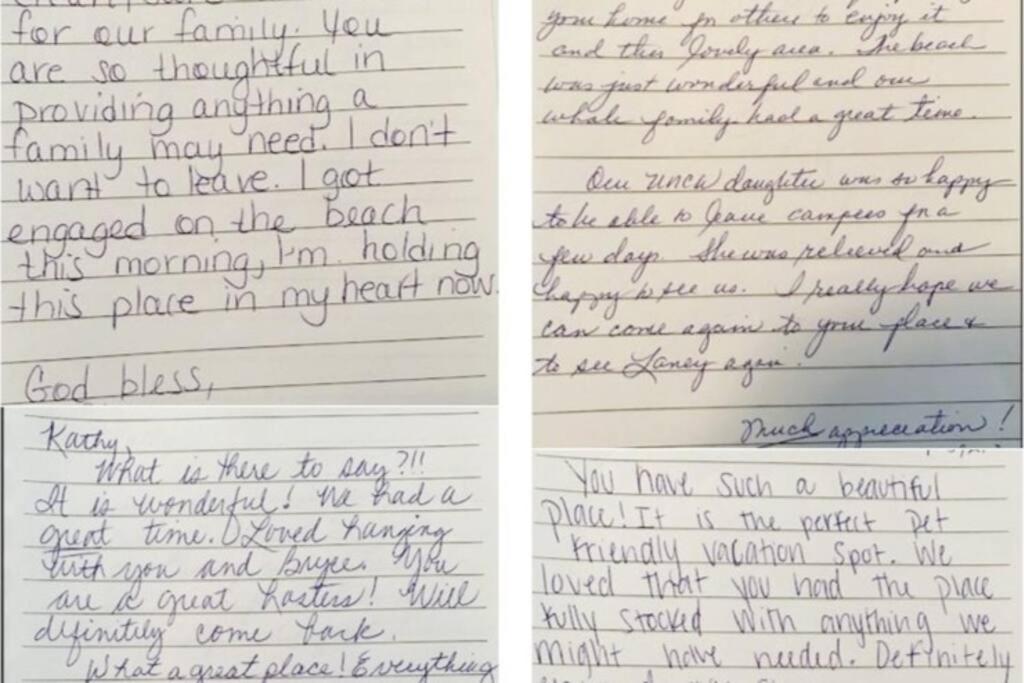 for our family. You
are so thoughtful in
providing anything a
family may need. I don't
want to leave. I got
engaged on the beach
this morning, I'm holding
this place in my heart now.
God bless,
Kathy,
What is there to say?!!
It is wonderful! We had a
great time. Loved hanging
with you and Bryce. You
are a great hosters! Will
definitely come back.
What a great place! Everything
your home for others to enjoy it
and this lovely area. The beach
was just wonderful and our
whole family had a great time.
Our UNCW daughter was so happy
to be able to leave campus for a
few days. She was relieved and
happy to see us. I really hope we
can come again to your place &
to see Laney again.
Much appreciation!
You have such a beautiful
place! It is the perfect pet
friendly vacation spot. We
loved that you had the place
fully stocked with anything we
might have needed. Definitely